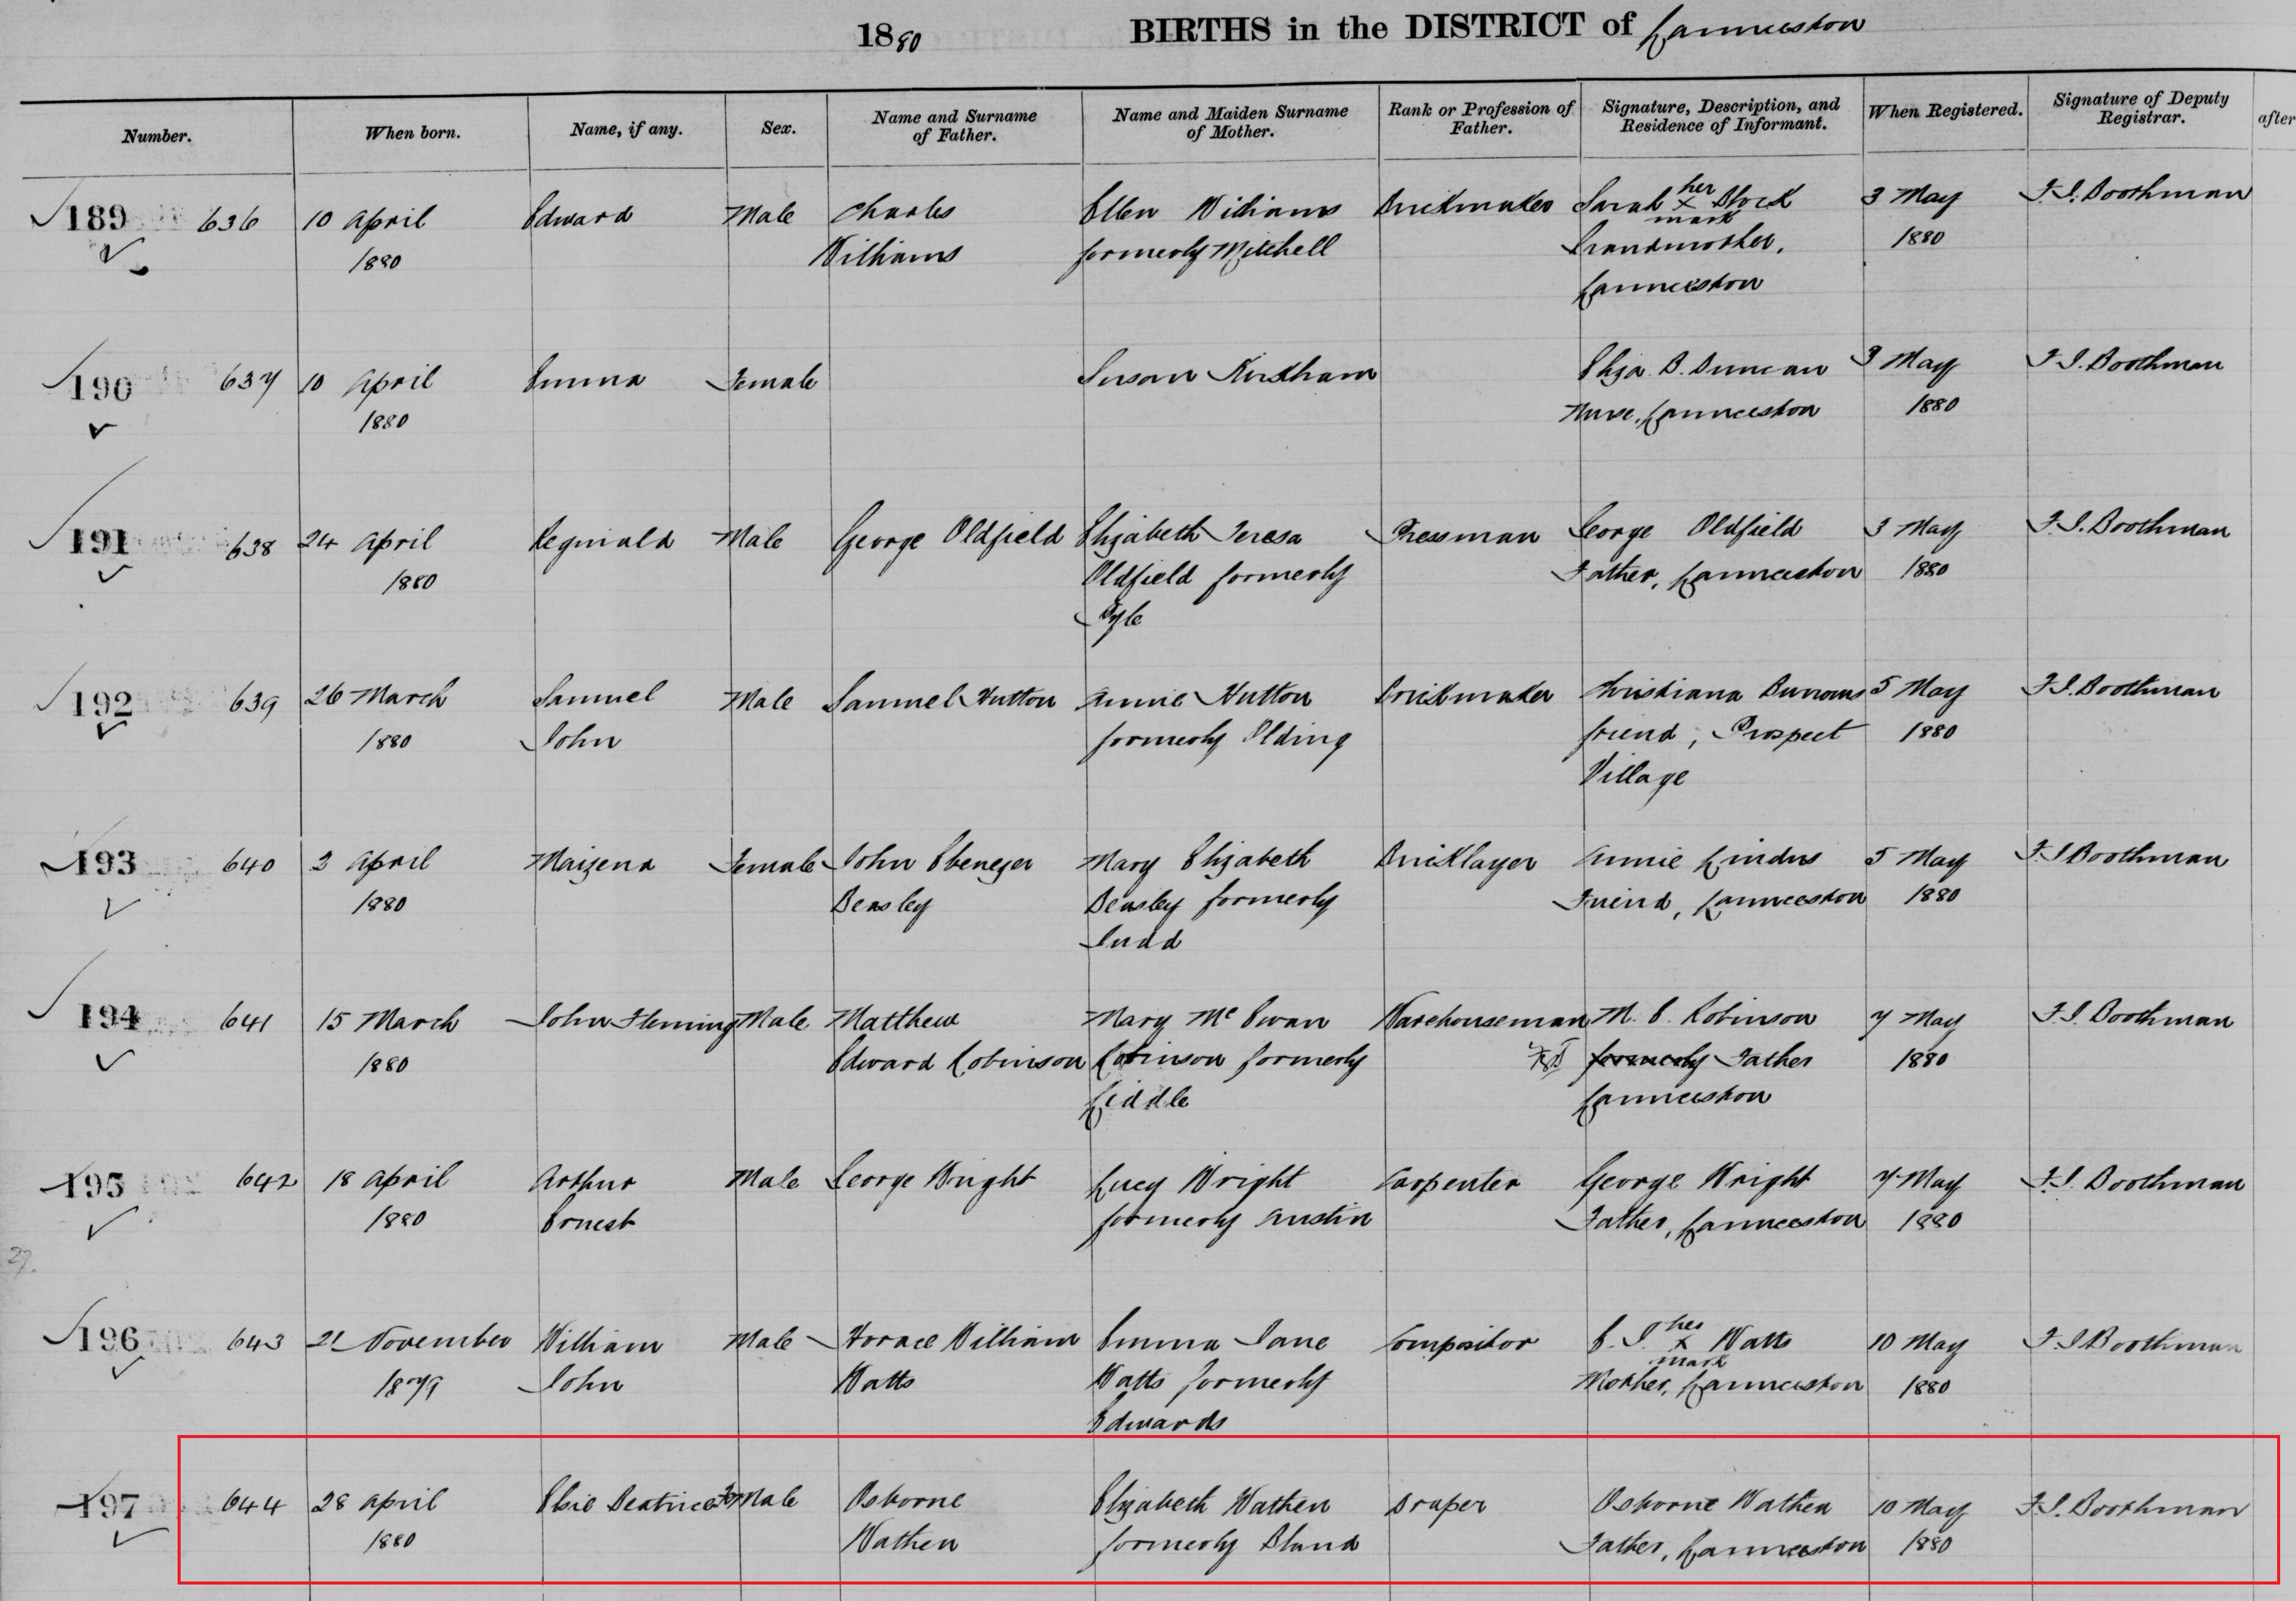 1880 BIRTHS in the DISTRICT of Launceston
Number. When born. Name, if any. Sex. Name and Surname of Father. Name and Maiden Surname of Mother. Rank or Profession of Father. Signature, Description, and Residence of Informant. When Registered. Signature of Deputy Registrar. after
189 636 10 April Edward Male Charles Ellen Williams Brickmaker Sarah her x mark Block 3 May F. J. Boothman
1880 Williams formerly Mitchell Grandmother, 1880
Launceston
190 637 10 April Emma Female Susan Kirkham Eliza B. Duncan 3 May F. J. Boothman
1880 Nurse, Launceston 1880
191 638 24 April Reginald Male George Oldfield Elizabeth Teresa Pressman George Oldfield 3 May F. J. Boothman
1880 Oldfield formerly Father, Launceston 1880
Pyle
192 639 26 March Samuel Male Samuel Hutton Annie Hutton Brickmaker Christiana Burrows 5 May F. J. Boothman
1880 John formerly Olding friend, Prospect 1880
Village
193 640 2 April Maizena Female John Ebenezer Mary Elizabeth Bricklayer Annie Lindus 5 May F. J. Boothman
1880 Beasley Beasley formerly Friend, Launceston 1880
Judd
194 641 15 March John Fleming Male Matthew Mary McEwan Warehouseman M. E. Robinson 7 May F. J. Boothman
1880 Edward Robinson Robinson formerly formerly Father 1880
Liddle Launceston
195 642 18 April Arthur Male George Wright Lucy Wright Carpenter George Wright 7 May F. J. Boothman
1880 Ernest formerly Austin Father, Launceston 1880
196 643 21 November William Male Horace William Emma Jane Compositor E. J. her x mark Watts 10 May F. J. Boothman
1879 John Watts Watts formerly Mother, Launceston 1880
Edwards
197 644 28 April Elsie Beatrice FeMale Osborne Elizabeth Wathen Draper Osborne Wathen 10 May F. J. Boothman
1880 Wathen formerly Bland Father, Launceston 1880